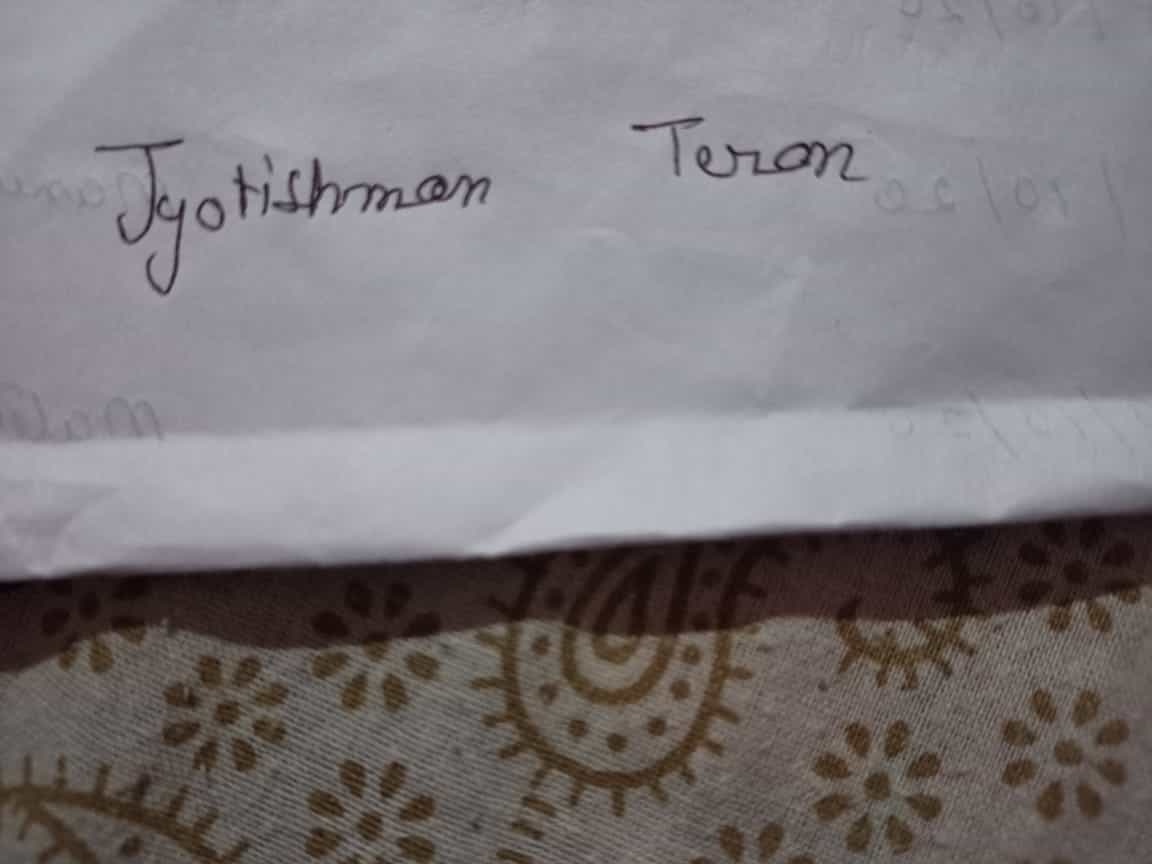 Jyotishman Teron